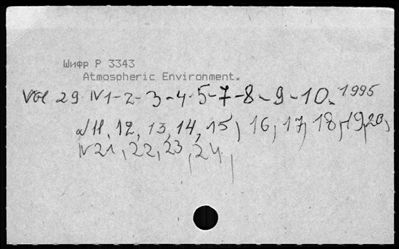 Шифр Р 3343
Atmospheric Environment.
Vol 29 N1-2-3-4-5-7-8-9-10. 1995
N11, 12, 13, 14, 15, 16, 17, 18, 19, 20,
N21, 22, 23, 24,